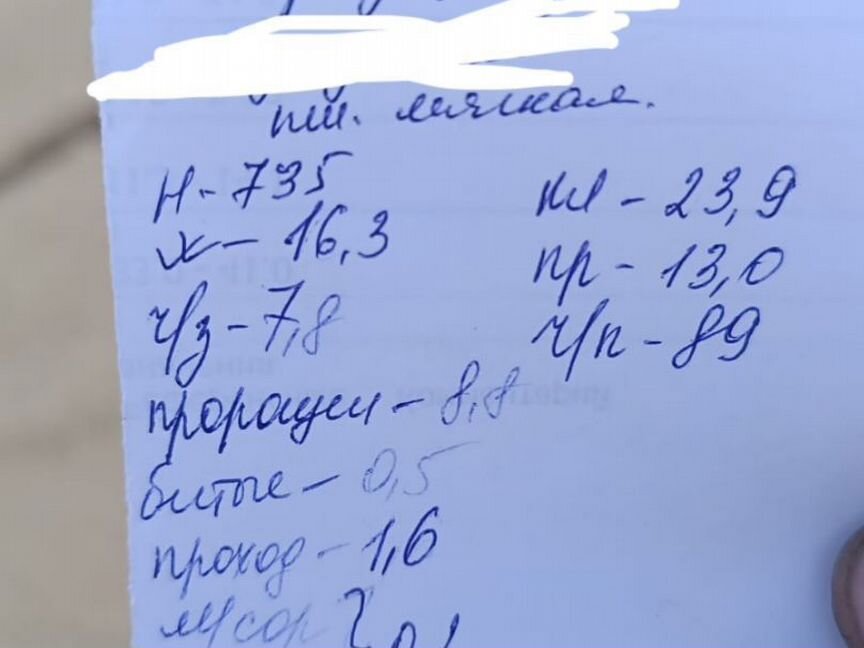 пш. мягкая.
Н - 735
ж - 16,3
ч/з - 7,8
пророщен - 8,8
битые - 0,5
проход - 1,6
мусор }
кл - 23,9
пр - 13,0
ч/п - 89